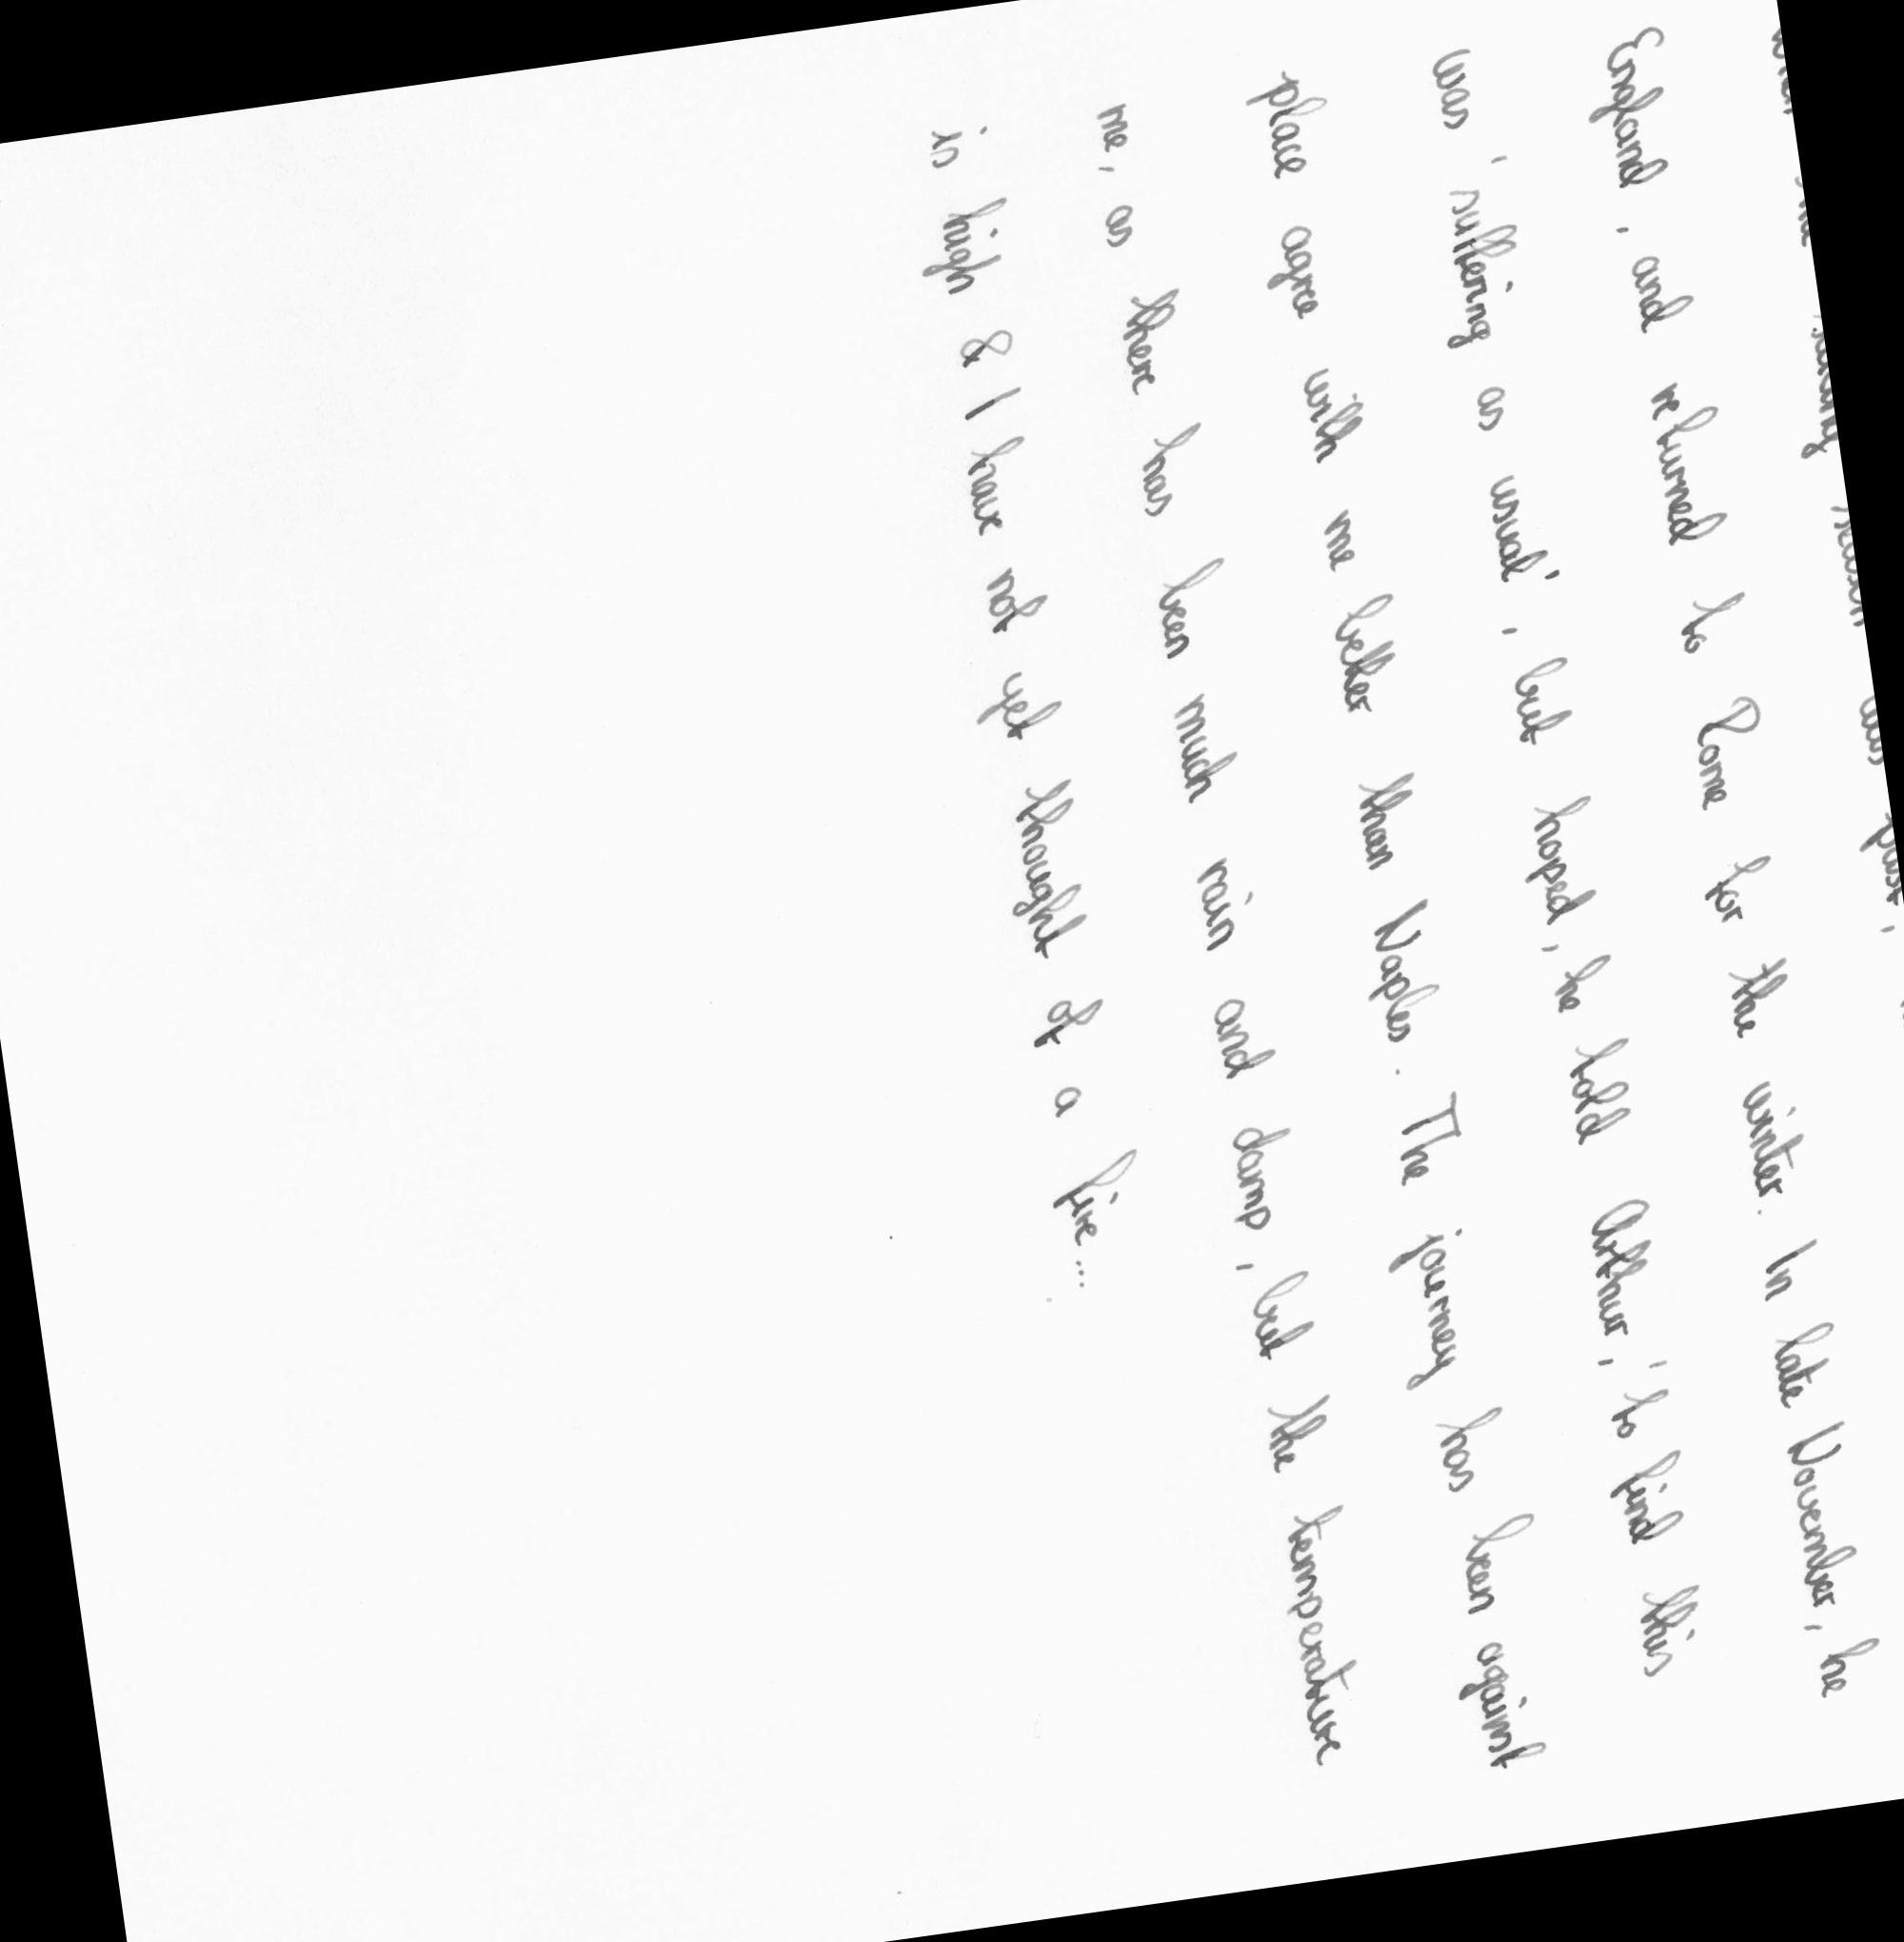 was past,
England, and returned to Rome for the winter. In late November, he
was 'suffering as usual', but hoped, he told Arthur, 'to find this
place agree with me better than Naples. The journey has been against
me, as there has been much rain and damp, but the temperature
is high & I have not yet thought of a fire...